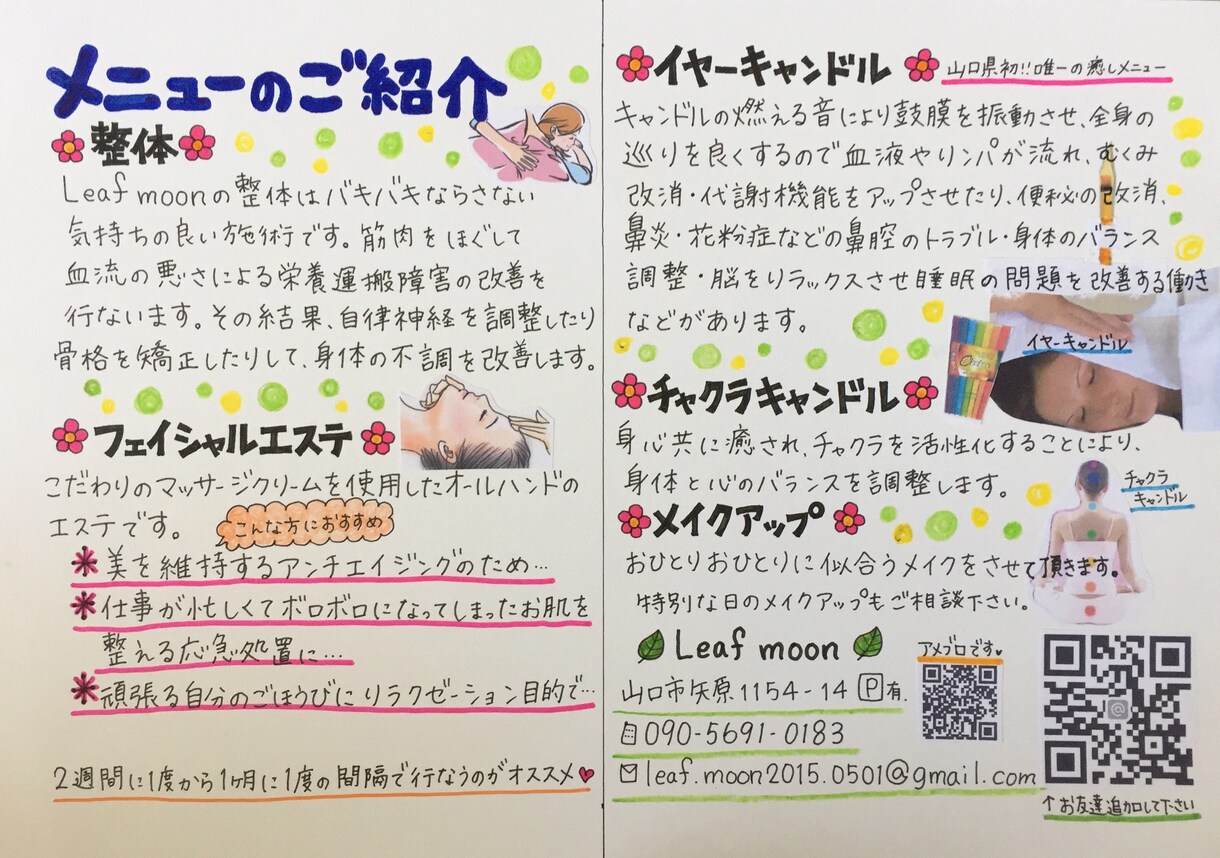 メニューのご紹介
整体
Leaf moonの整体はバキバキならさない
気持ちの良い施術です。筋肉をほぐして
血流の悪さによる栄養運搬障害の改善を
行ないます。その結果、自律神経を調整したり
骨格を矯正したりして、身体の不調を改善します。
フェイシャルエステ
こだわりのマッサージクリームを使用したオールハンドの
エステです。
こんな方におすすめ
*美を維持するアンチエイジングのため…
*仕事が忙しくてボロボロになってしまったお肌を
整える応急処置に…
*頑張る自分のごほうびにリラクゼーション目的で…
2週間に1度から1ヶ月に1度の間隔で行なうのがオススメ♥
イヤーキャンドル
山口県初!!唯一の癒しメニュー
キャンドルの燃える音により鼓膜を振動させ、全身の
巡りを良くするので血液やリンパが流れ、むくみ
改消・代謝機能をアップさせたり、便秘の改消、
鼻炎・花粉症などの鼻腔のトラブル・身体のバランス
調整・脳をリラックスさせ睡眠の問題を改善する働き
などがあります。
イヤーキャンドル
チャクラキャンドル
身心共に癒され、チャクラを活性化することにより、
身体と心のバランスを調整します。
チャクラ
キャンドル
メイクアップ
おひとりおひとりに似合うメイクをさせて頂きます。
特別な日のメイクアップもご相談下さい。
Leaf moon
アメブロです♥
山口市矢原1154-14 P有.
090-5691-0183
leaf.moon2015.0501@gmail.com
↑お友達追加して下さい